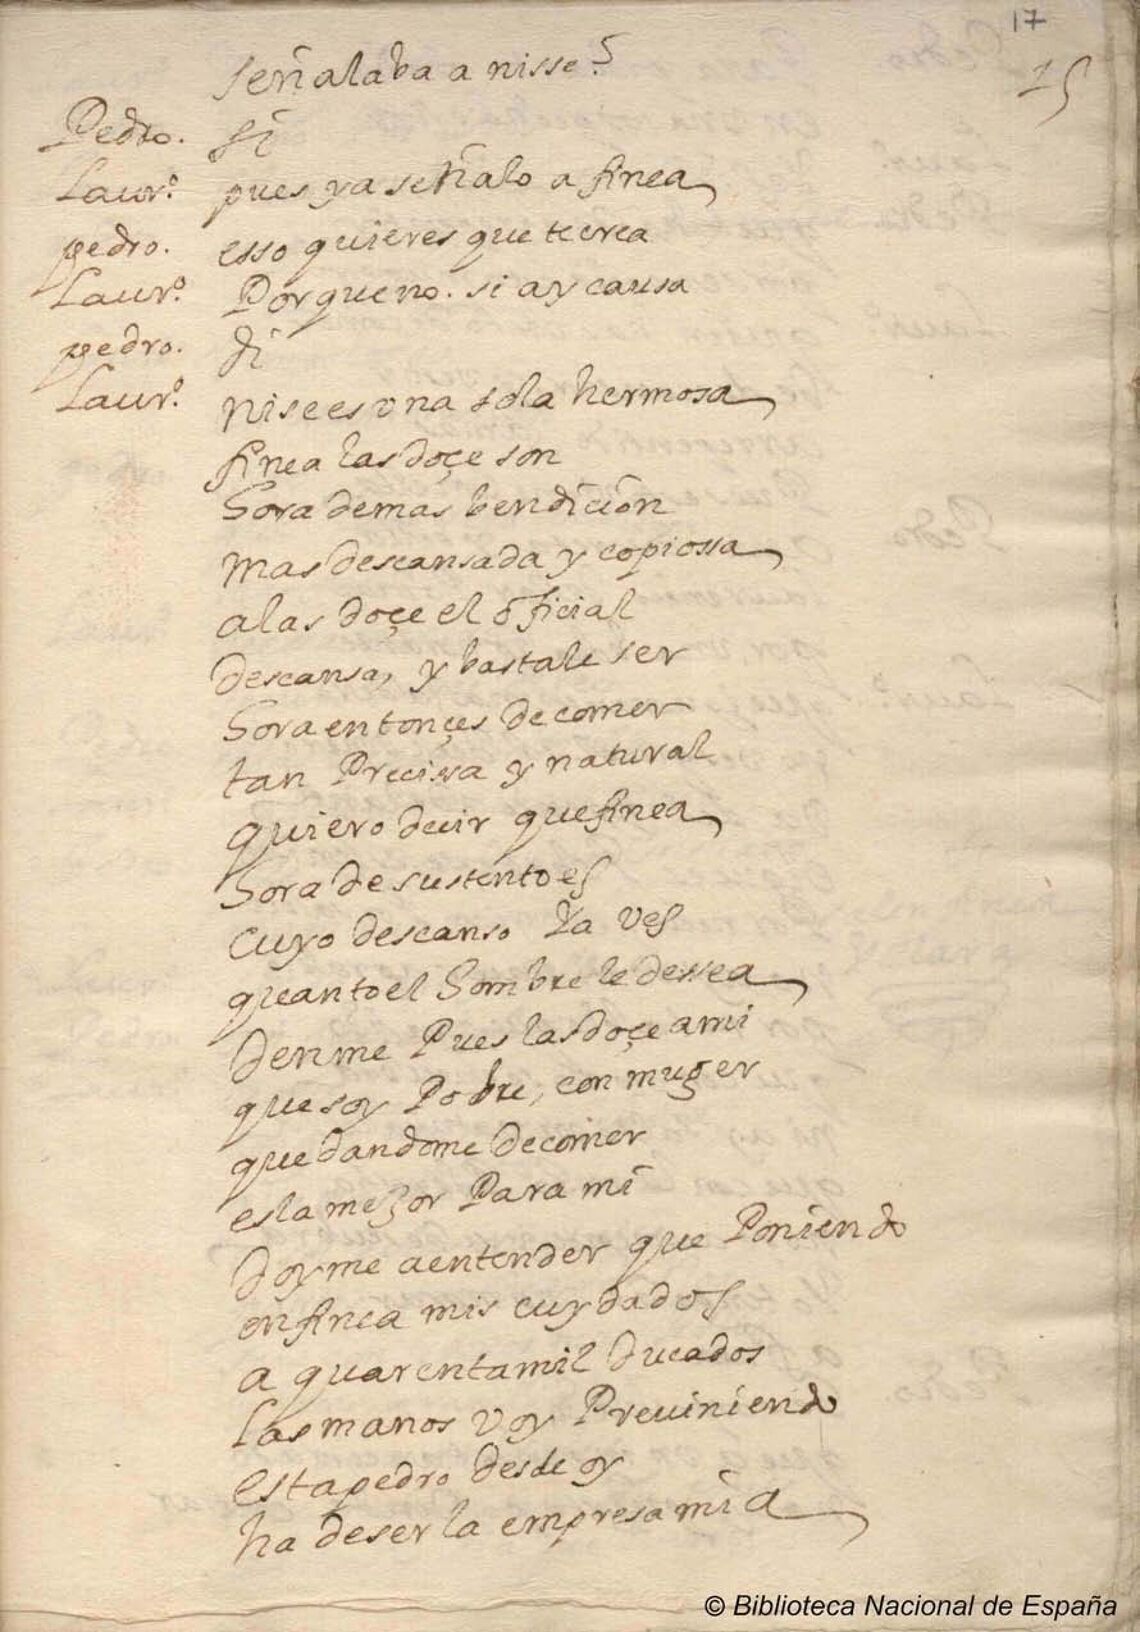 17
15
señalaba a nisse?
Pedro. si
Laur.º pues ya señalo a finea
pedro. esso quieres que te crea
Laur.º Porque no. si ay causa
pedro. di
Laur.º nise es vna sola hermosa
finea las doçe son
hora de mas bendicion
mas descansada y copiossa
a las doçe el oficial
descansa, y bastale ser
hora entonçes de comer
tan Precissa y natural
quiero decir que finea
hora de sustento es
cuyo descanso Ya ves
quanto el hombre le dessea
denme Pues las doçe a mi
que soy Pobre, con muger
que dandome de comer
es la mejor Para mi
doyme a entender que Poniendo
en finea mis cuydados
a quarenta mil ducados
las manos voy Preuiniendo
esta pedro desde oy
ha de ser la empresa mia
© Biblioteca Nacional de España